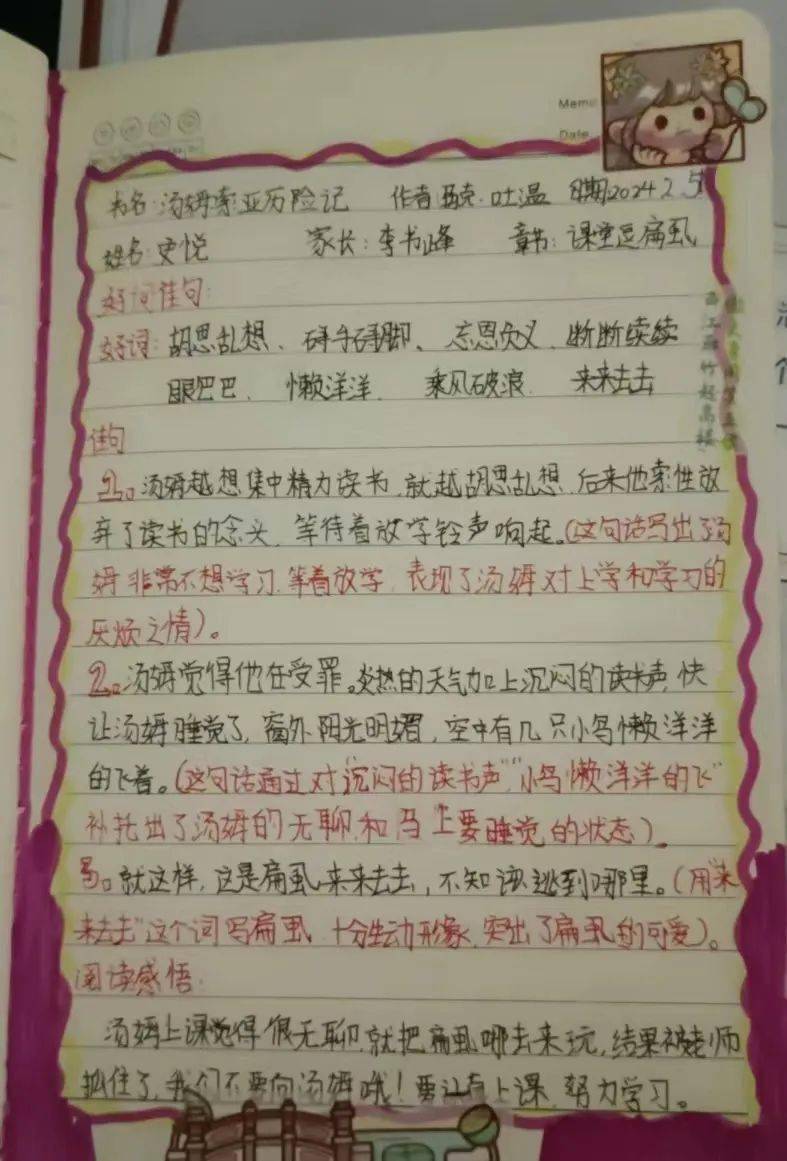 Memo
Date
书名:汤姆索亚历险记 作者:马克·吐温 日期2024.2.5
姓名:史悦 家长:李书峰 章节:课堂逗扁虱
好词佳句:
好词:胡思乱想、碍手碍脚、忘恩负义、断断续续
眼巴巴、懒洋洋、乘风破浪、来来去去
佳句
1。汤姆越想集中精力读书,就越胡思乱想,后来他索性放
弃了读书的念头,等待着放学铃声响起。(这句话写出了汤
姆非常不想学习,等着放学,表现了汤姆对上学和学习的
厌烦之情)。
2。汤姆觉得他在受罪。炎热的天气加上沉闷的读书声,快
让汤姆睡觉了,窗外阳光明媚,空中有几只小鸟懒洋洋
的飞着。(这句话通过对“沉闷的读书声”“小鸟懒洋洋的飞”
衬托出了汤姆的无聊,和马上要睡觉的状态)。
3。就这样,这是扁虱来来去去,不知该逃到哪里。(用“来
来去去”这个词写扁虱,十分生动形象,突出了扁虱的可爱)。
阅读感悟:
汤姆上课觉得很无聊,就把扁虱哪去来玩,结果被老师
抓住了,我们不要向汤姆哦!要认真上课,努力学习。